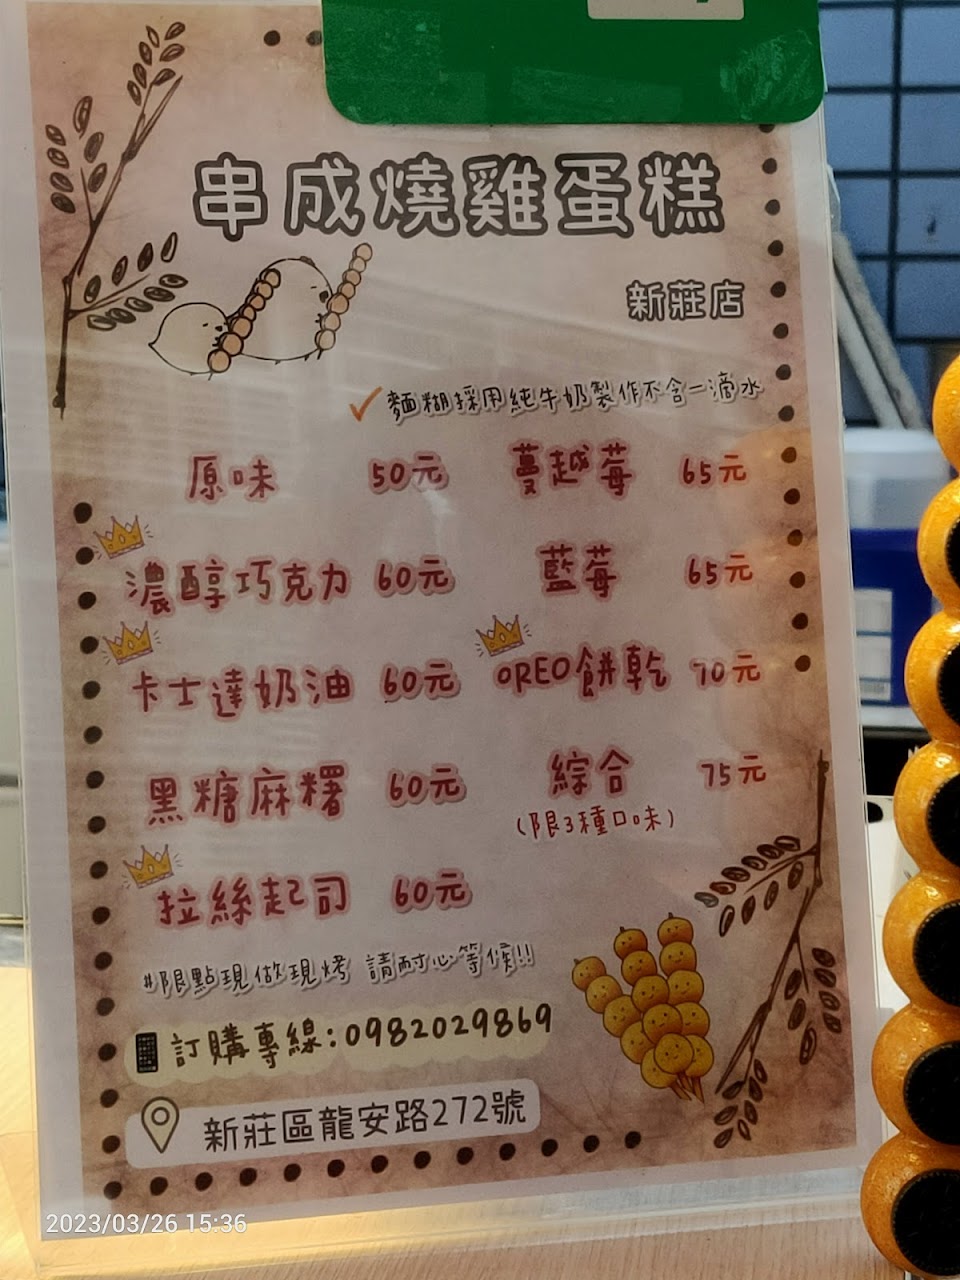 串成燒雞蛋糕
新莊店
麵糊採用純牛奶製作不含一滴水
原味 50元 蔓越莓 65元
濃醇巧克力 60元 藍莓 65元
卡士達奶油 60元 OREO餅乾 70元
黑糖麻糬 60元 綜合 75元
(限3種口味)
拉絲起司 60元
#限點現做現烤 請耐心等候!!
訂購專線:0982029869
新莊區龍安路272號
2023/03/26 15:36